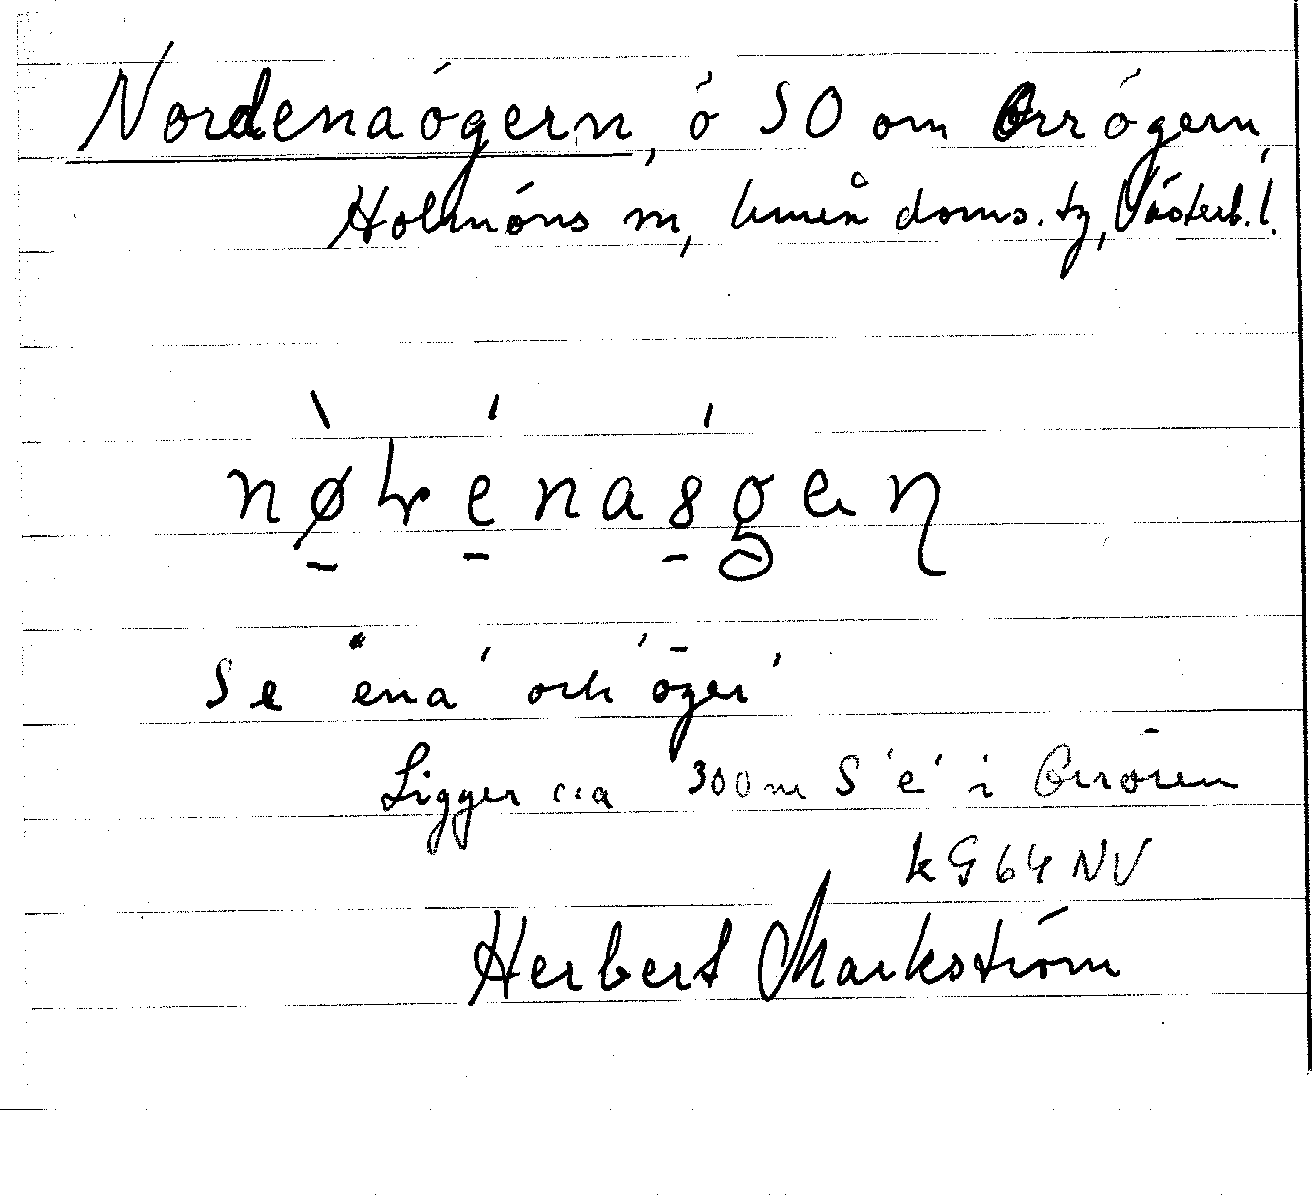 Nordenaögern, ö SO om Orrögern,
Holmöns sn, Umeå doms. tg, Västerb. l.
Se "ena" och "öger"
Ligger c:a 300 m S "e" i Orrören
kG 64 NV
Herbert Markström